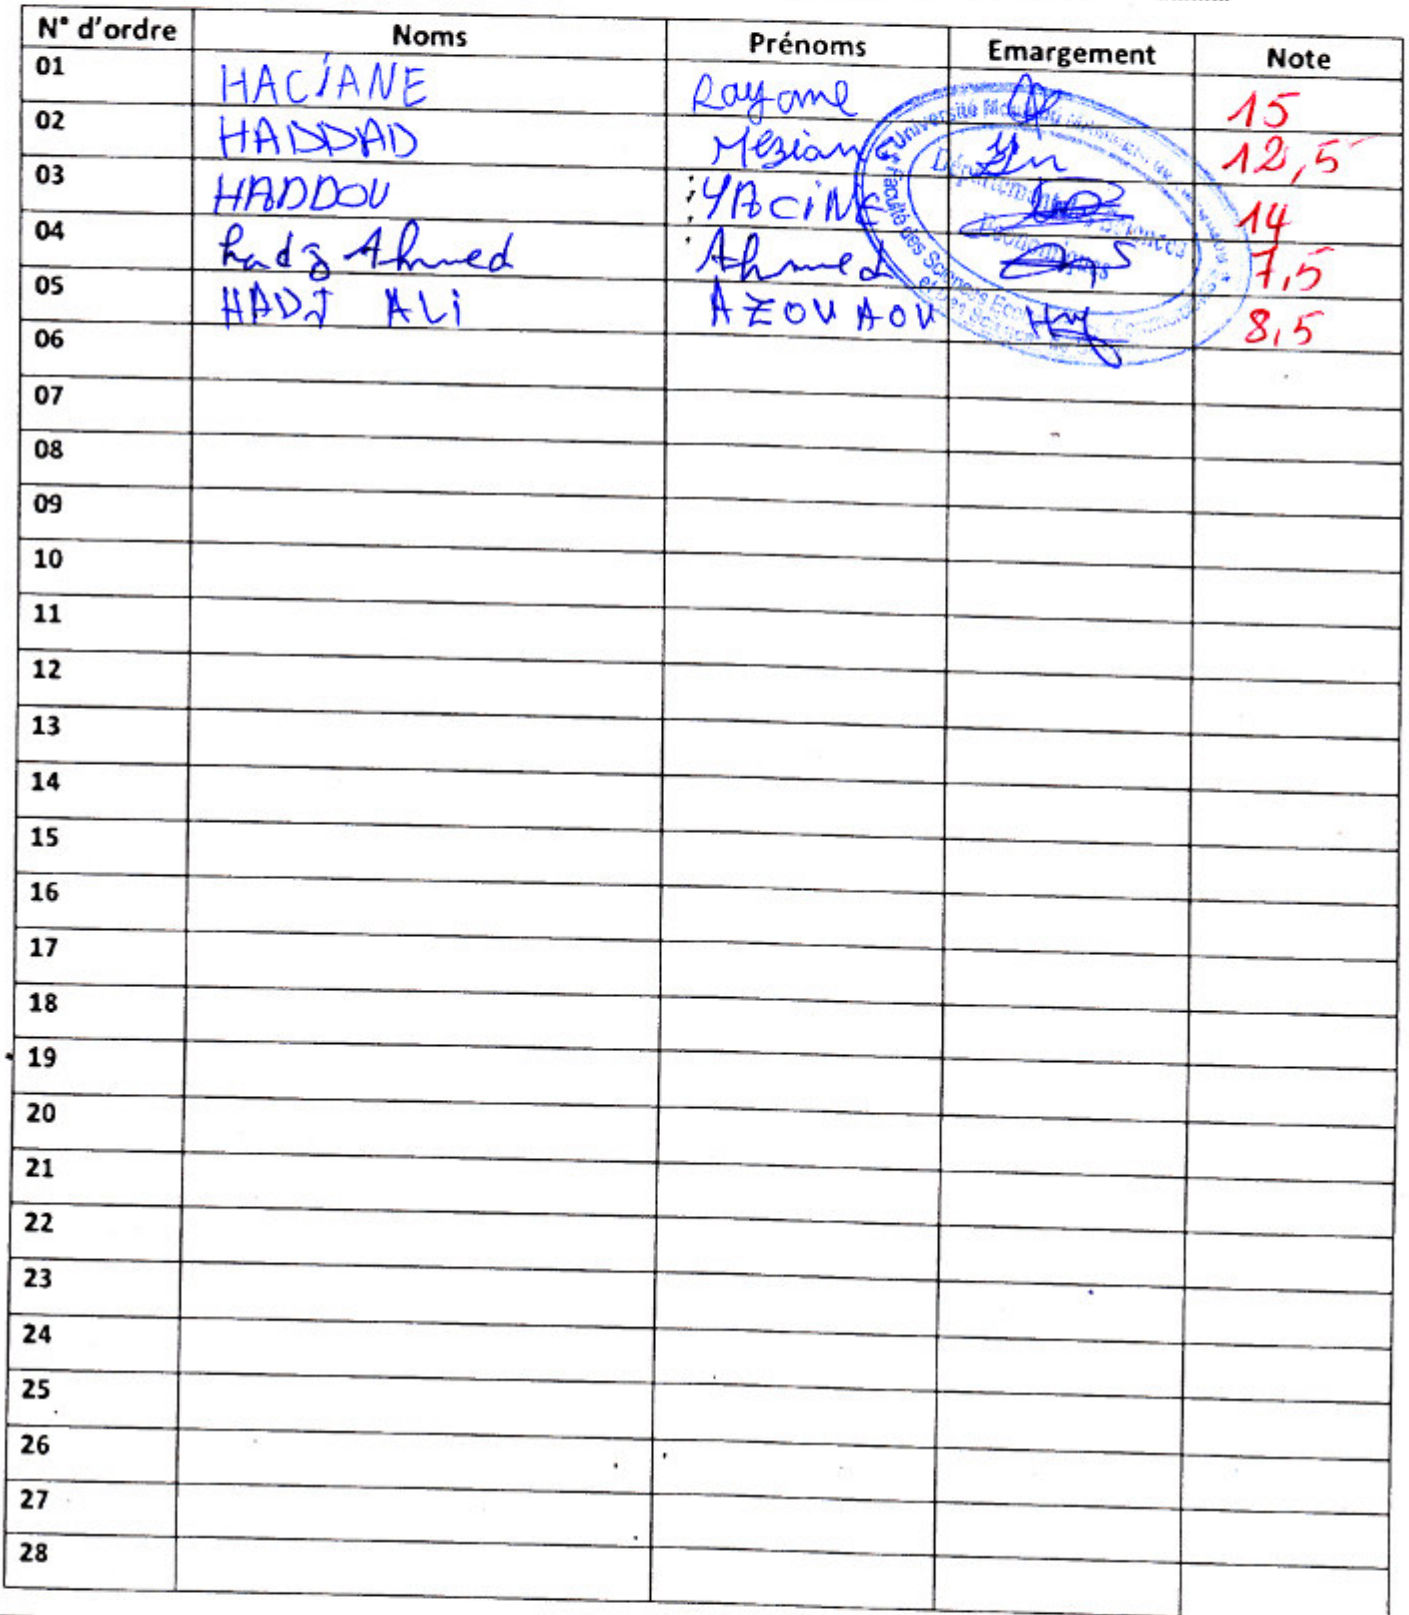 N° d'ordre Noms Prénoms Emargement Note
01 HACIANE Rayane 15
02 HADDAD Meziane 12,5
03 HADDOU YACINE 14
04 hadj Ahmed Ahmed 7,5
05 HADJ ALi AZOUAOU 8,5
06
07
08
09
10
11
12
13
14
15
16
17
18
19
20
21
22
23
24
25
26
27
28
Université
Faculté des Sciences
Département Sciences
Economiques